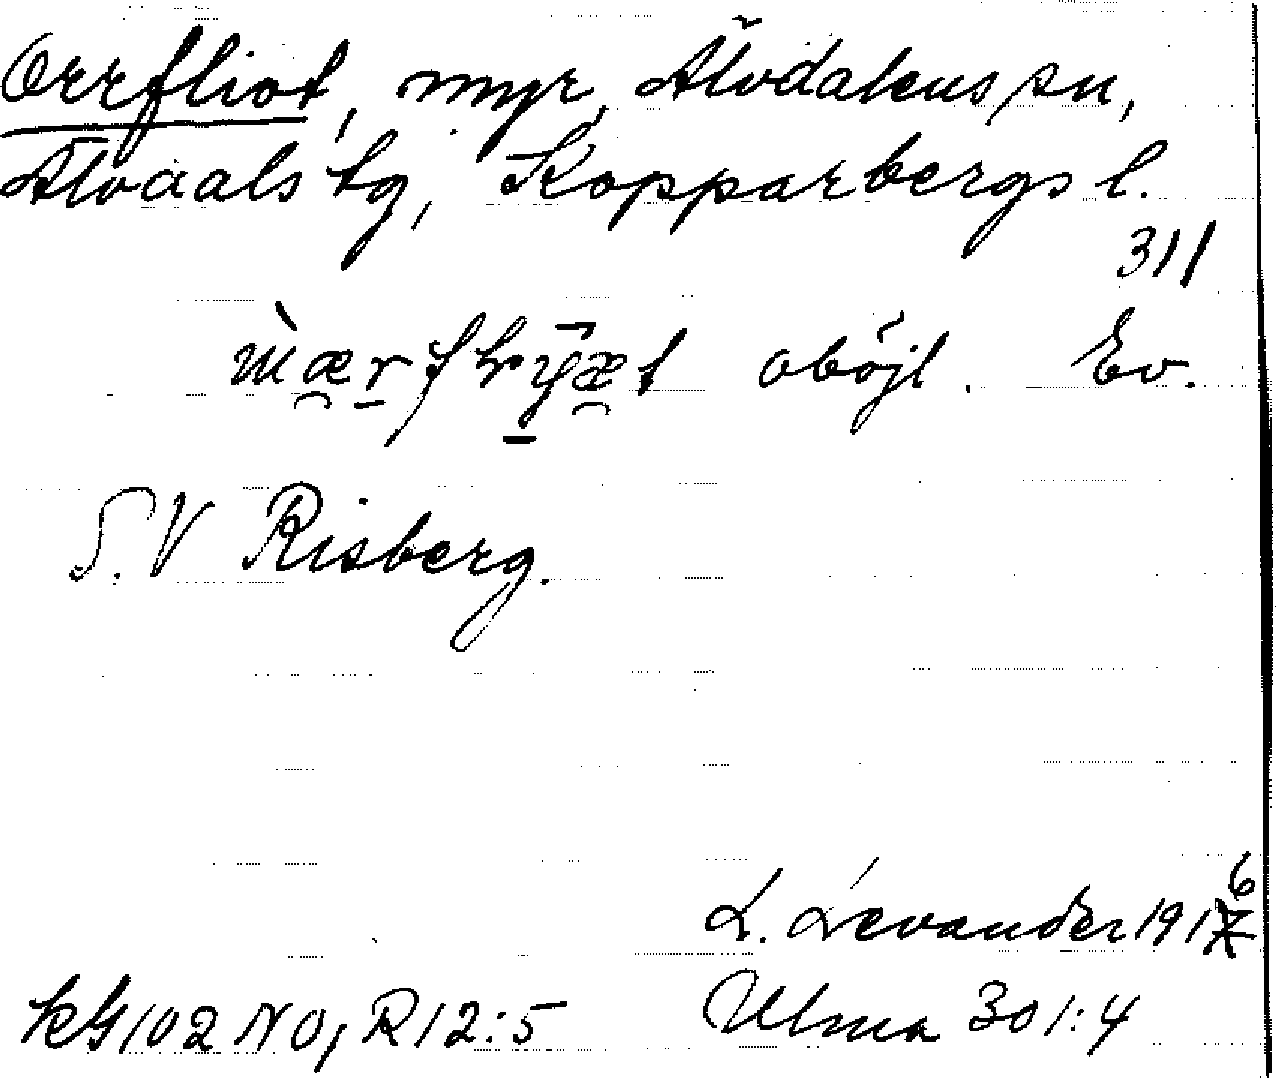 Orrfliot, myr, Älvdalens sn,
Älvdals tg, Kopparbergs l.
311
oböjl. Ev.
S. V Risberg.
L. Levander 1916
KG 102 NO, R 12:5 Ulma 301:4